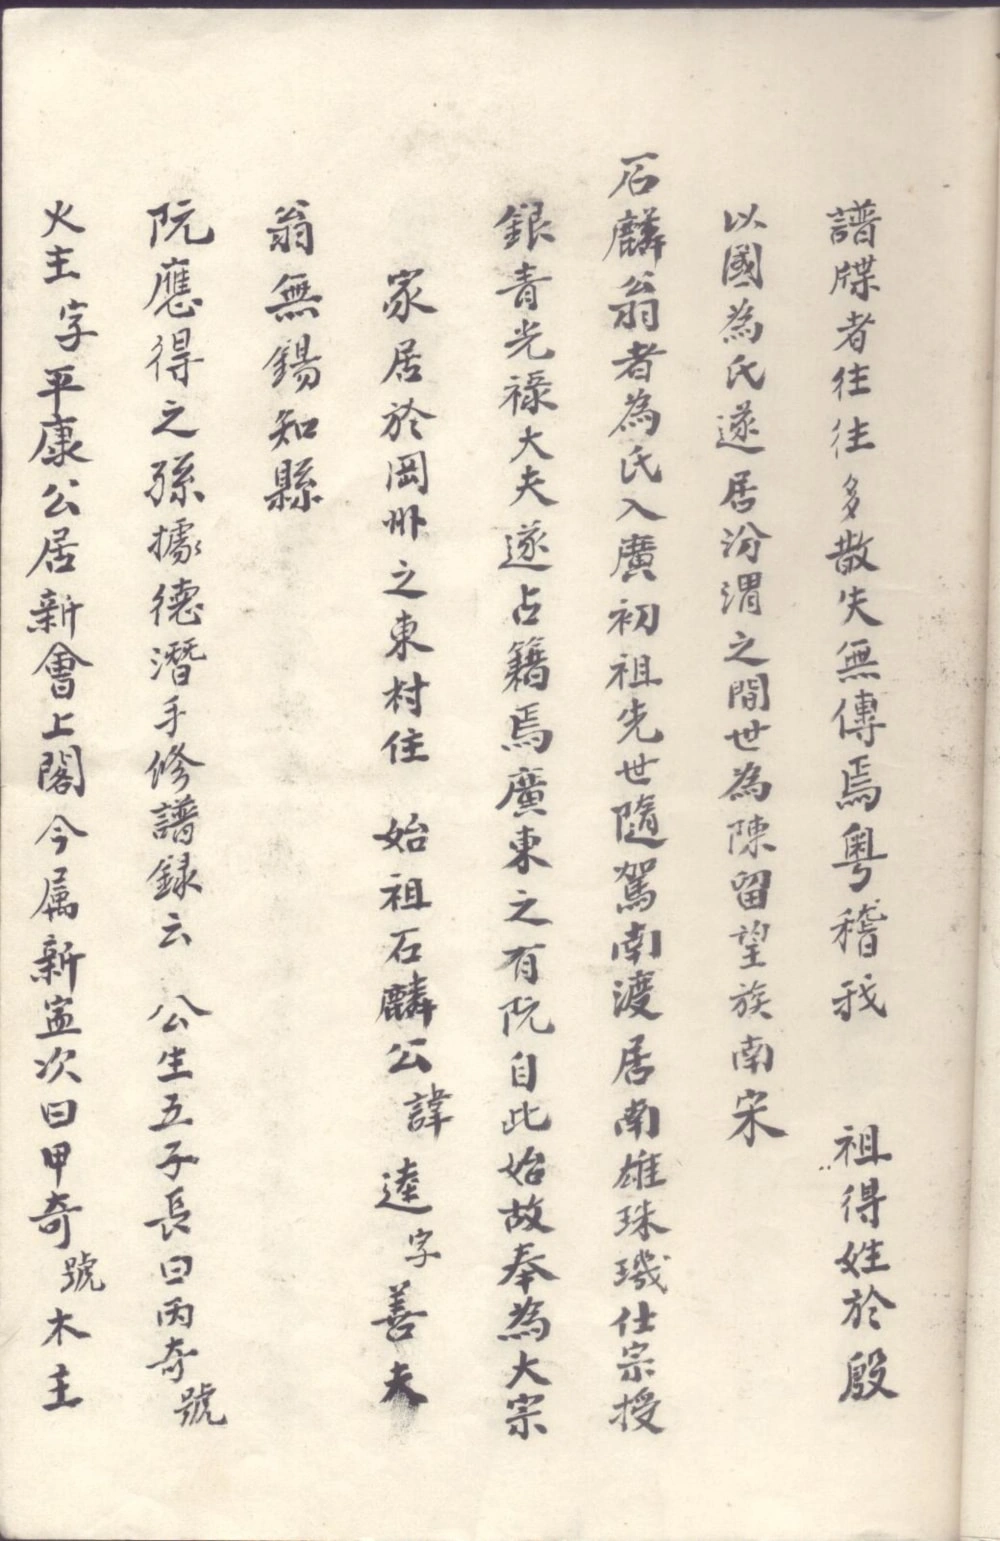 譜牒者往往多散失無傳焉粵稽我 祖得姓於殷
以國為氏遂居汾渭之間世為陳留望族南宋
石麟翁者為氏入廣初祖先世隨駕南渡居南雄珠璣仕宗授
銀青光祿大夫遂占籍焉廣東之有阮自此始故奉為大宗
家居於岡州之東村住 始祖石麟公諱逵字善夫
翁無錫知縣
阮應得之孫據德潛手修譜録云 公生五子長曰丙奇號
火主字平康公居新會上閣今属新寍次曰甲奇號木主